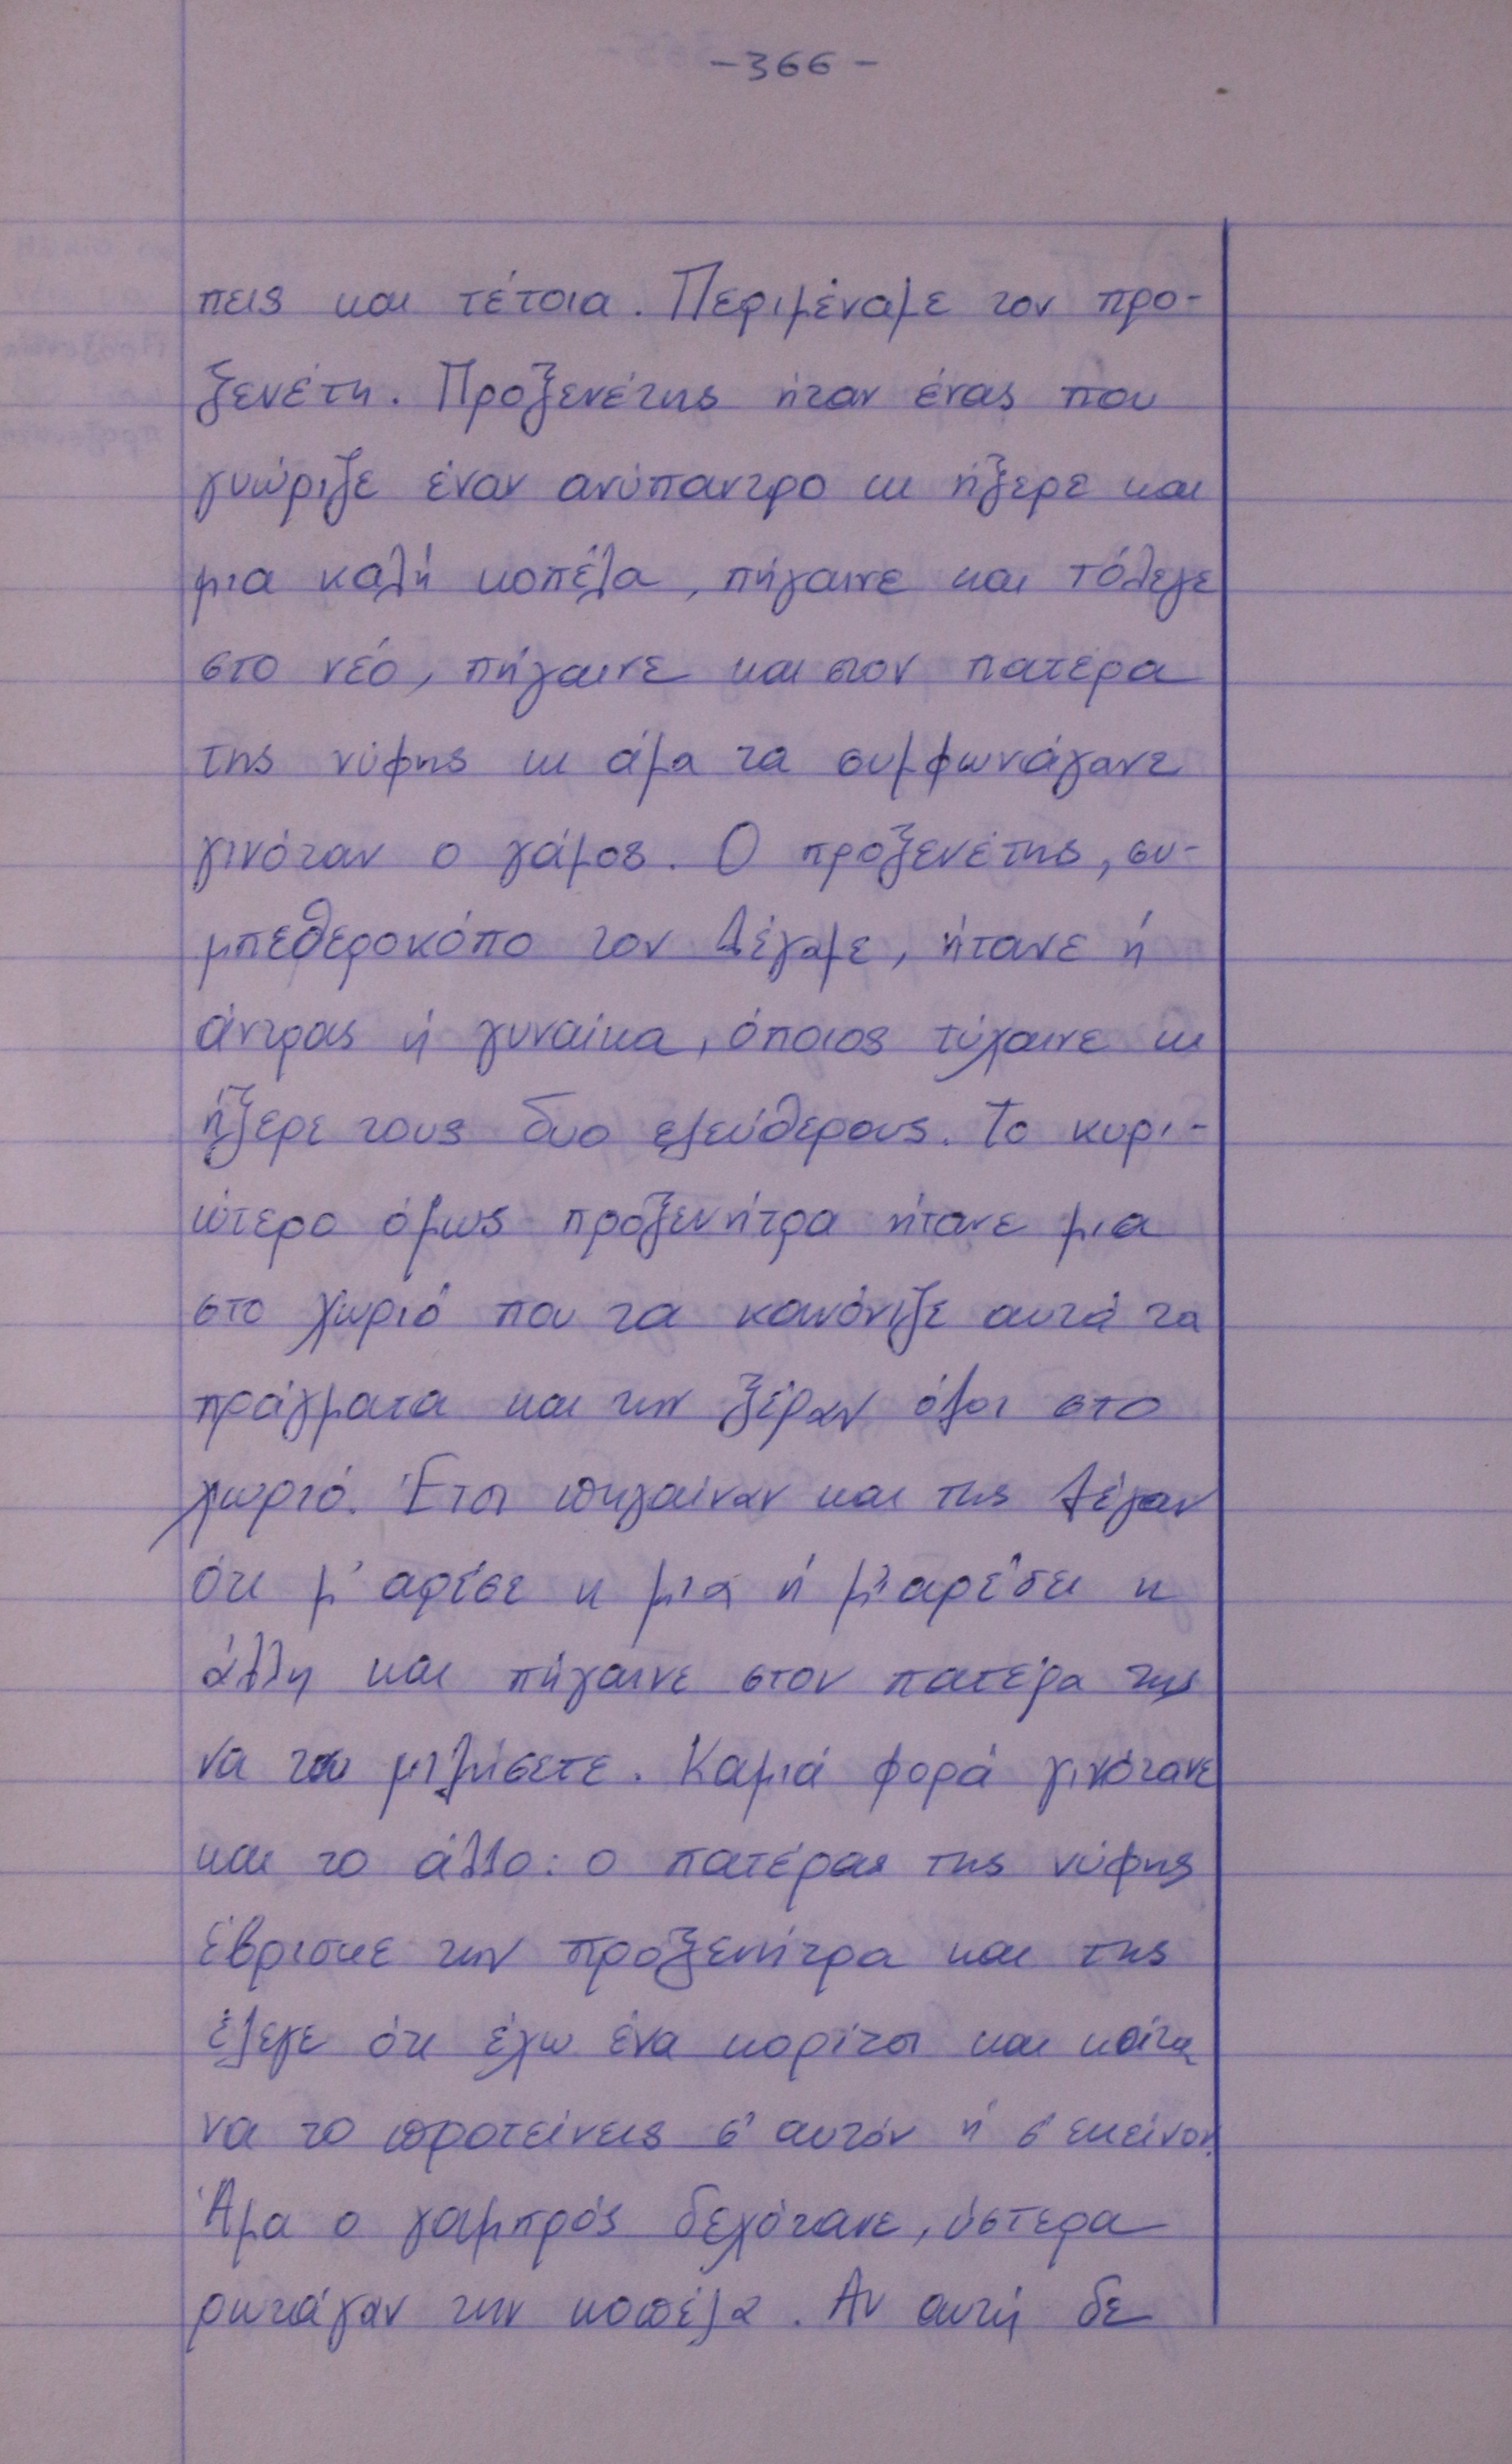 -366-
πεις και τέτοια. Περιμέναμε τον προ-
ξενέτη. Προξενέτης ήταν ένας που
γνώριζε έναν ανύπαντρο κι ήξερε και
μια καλή κοπέλα, πήγαινε και τόλεγε
στο νέο, πήγαινε και στον πατέρα
της νύφης κι άμα τα συμφωνάγανε
γινόταν ο γάμος. Ο προξενέτης, συ-
μπεθεροκόπο τον λέγαμε, ήτανε ή
άντρας ή γυναίκα, όποιος τύχαινε κι
ήξερε τους δυο ελεύθερους. Το κυρι-
ώτερο όμως προξενήτρα ήτανε μια
στο χωριό που τα κανόνιζε αυτά τα
πράγματα και την ξέραν όλοι στο
χωριό. Έτσι πηγαίναν και της λέγαν
ότι μ' αρέσε η μια ή μ' αρέσει η
άλλη και πήγαινε στον πατέρα της
να του μιλήσετε. Καμιά φορά γινότανε
και το άλλο: ο πατέρας της νύφης
έβρισκε την προξενήτρα και της
έλεγε ότι έχω ένα κορίτσι και κοίτα
να το προτείνεις σ' αυτόν ή σ' εκείνον.
Άμα ο γαμπρός δεχότανε, ύστερα
ρωτάγαν την κοπέλα. Αν αυτή δε